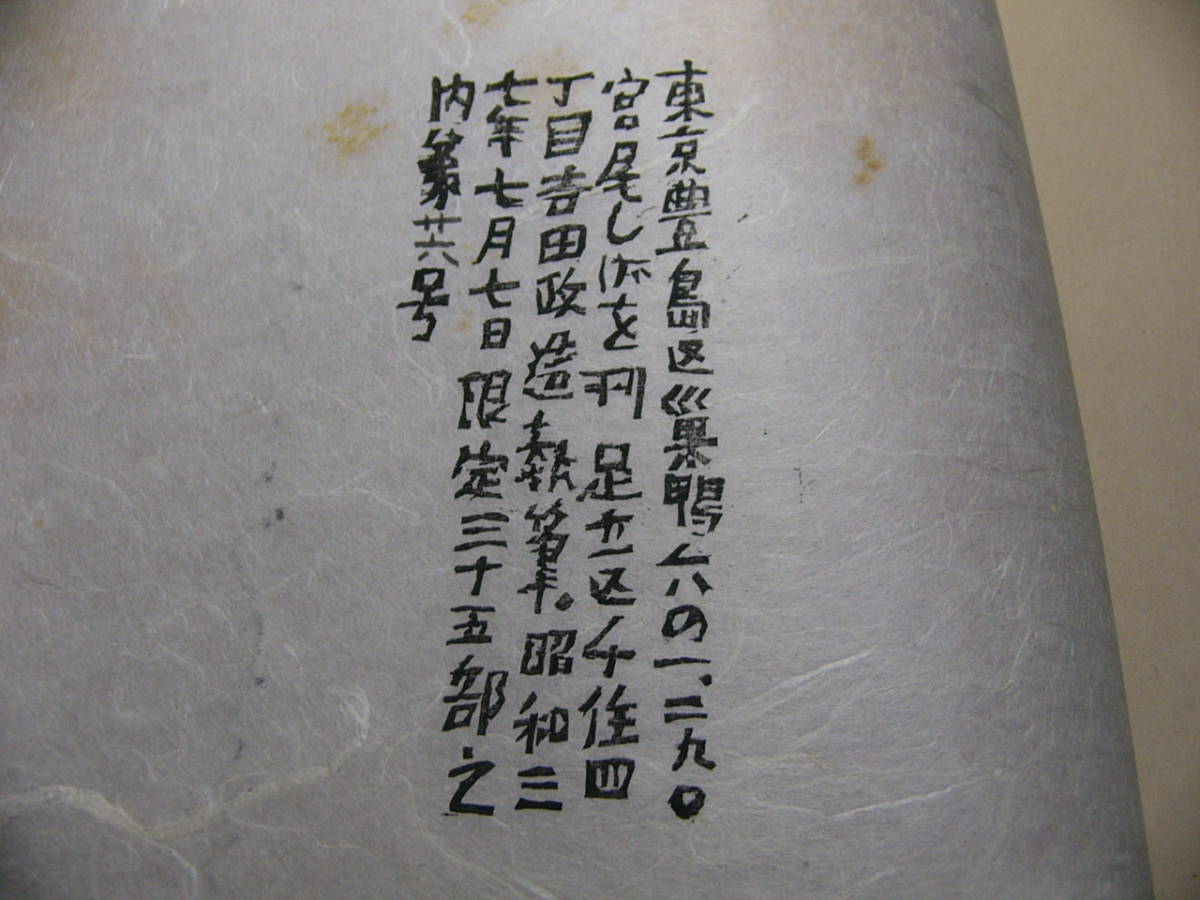 東京豊島区巣鴨六の一、二九〇
宮尾しげを刊 足立区千住四
丁目吉田政造執筆。昭和三
七年七月七日限定三十五部之
内第廿六号